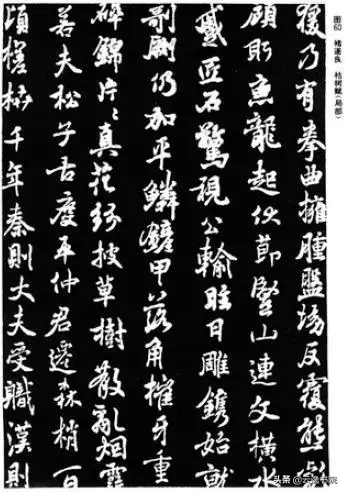 图60 褚遂良 枯树赋（局部）
猨乃有拳曲擁腫盤坳反覆熊彪
顧盼魚龍起伏節竪山連文橫水
蹙匠石驚視公輸眩目雕鐫始就
剞劂仍加平鱗鏟甲落角摧牙重
碎錦片々真花紛披草樹散亂烟霞
若夫松子古度平仲君遷森梢百
頃槎枿千年秦則大夫受職漢則
头条